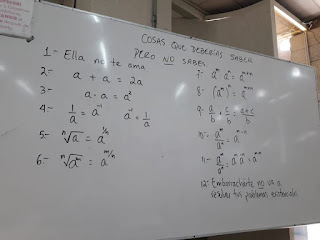 COSAS QUE DEBERÍAS SABER
PERO NO SABES
1- Ella no te ama
2- a + a = 2a
3- a · a = a²
4- 1/a = a⁻¹ a⁻¹ = 1/a
5- ⁿ√a = a^1/n
6- ⁿ√aᵐ = a^m/n
7- aᵐ aⁿ = aᵐ⁺ⁿ
8- (aᵐ)ⁿ =
9- a/b + c/b = a+c/b
10- aᵐ/aⁿ = aᵐ⁻ⁿ
11-
12- Emborracharte no va a
resolver tus problemas existenciales